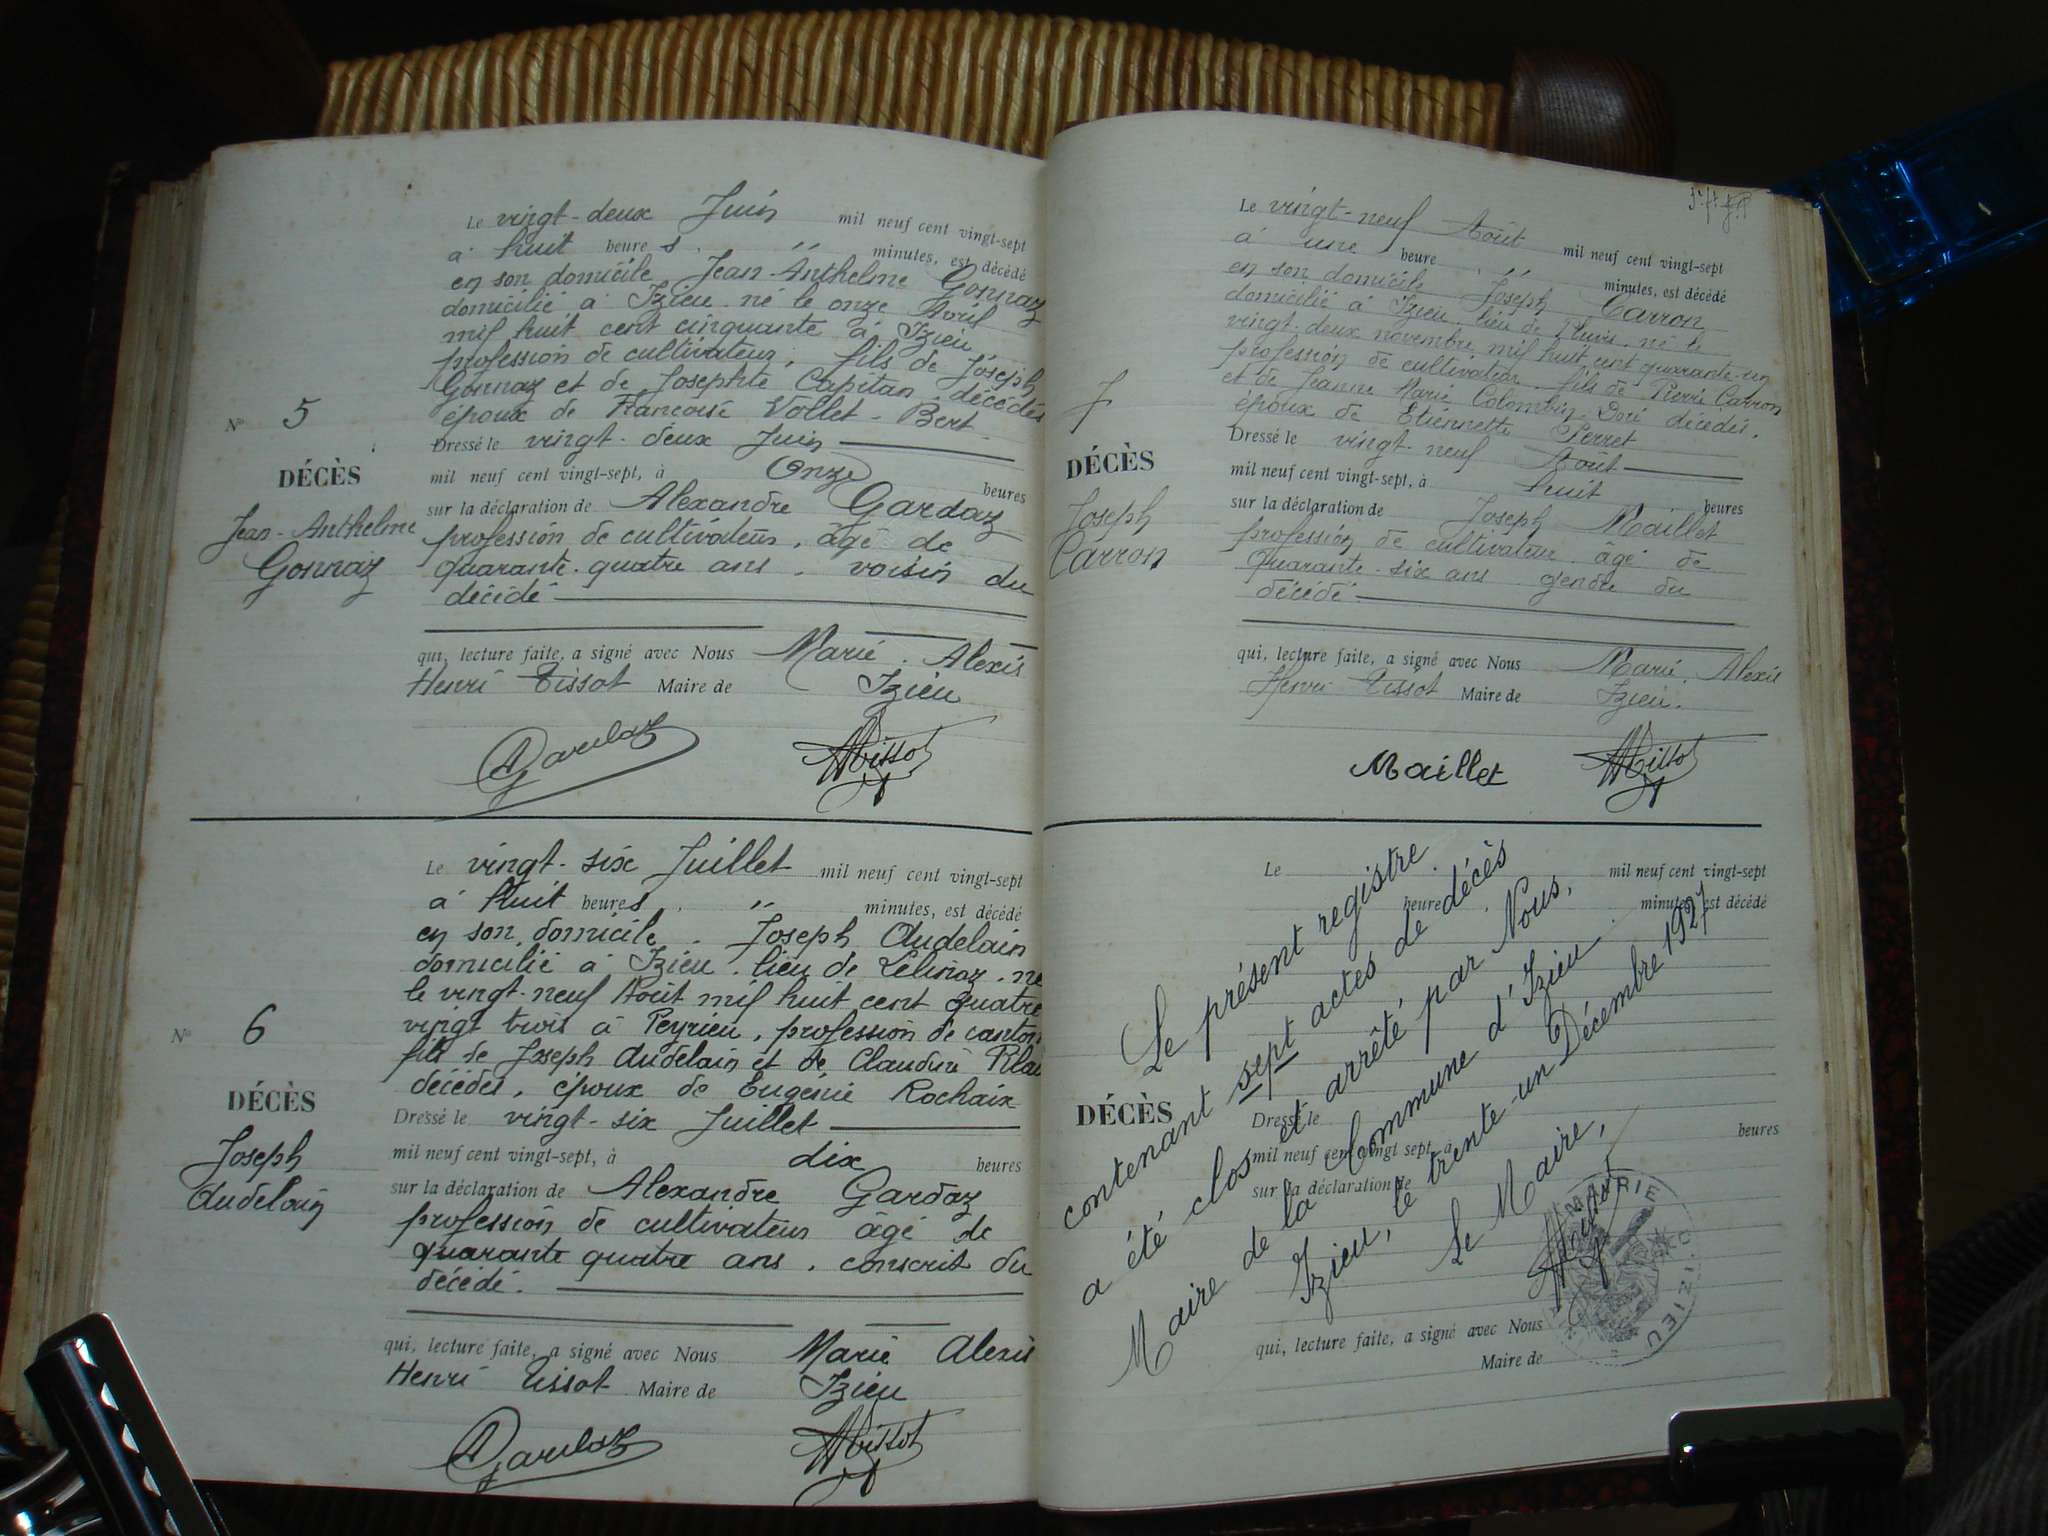 Le vingt-deux Juin mil neuf cent vingt-sept
à huit heures. " minutes, est décédé
en son domicile, Jean-Anthelme Gonnaz
domicilié à Izieu. né le onze Avril
mil huit cent cinquante à Izieu
profession de cultivateur, fils de Joseph
Gonnaz et de Josephte Capitan. décédés
époux de Françoise Vollet-Bert.
N° 5
Dressé le vingt-deux Juin
DÉCÈS
mil neuf cent vingt-sept, à Onze heures
Jean-Anthelme
Gonnaz
sur la déclaration de Alexandre Gardaz
profession de cultivateur, âgé de
quarante-quatre ans. voisin du
décédé
qui, lecture faite, a signé avec Nous Marie. Alexis
Henri Tissot Maire de Izieu
AGardaz
AHTissot
Le vingt-six Juillet mil neuf cent vingt-sept
à huit heures. " minutes, est décédé
en son domicile. Joseph Audelain
domicilié à Izieu. lieu de Lélinaz. né
le vingt-neuf Août mil huit cent quatre
vingt trois à Peyrieu, profession de canton
fils de Joseph Audelain et de Claudine
décédés, époux de Eugénie Rochaix
N° 6
Dressé le vingt-six Juillet
DÉCÈS
mil neuf cent vingt-sept, à dix heures
Joseph
Audelain
sur la déclaration de Alexandre Gardaz
profession de cultivateur âgé de
quarante quatre ans. conscrit du
décédé.
qui, lecture faite, a signé avec Nous Marie Alexis
Henri Tissot Maire de Izieu
AGardaz
AHTissot
Le vingt-neuf Août mil neuf cent vingt-sept
à une heure. " minutes, est décédé
en son domicile Joseph Carron
domicilié à Izieu. lieu de né le
vingt-deux novembre mil huit cent quarante-un
profession de cultivateur. fils de Pierre Carron
et de Jeanne Marie Colombin-Doré décédés.
époux de Etiennette Perret
7
Dressé le vingt-neuf Août
DÉCÈS
mil neuf cent vingt-sept, à huit heures
Joseph
Carron
sur la déclaration de Joseph Maillet
profession de cultivateur âgé de
Quarante-six ans. gendre du
décédé.
qui, lecture faite, a signé avec Nous Marie. Alexis
Henri Tissot Maire de Izieu.
Maillet
AHTissot
Le mil neuf cent vingt-sept
heure minutes, est décédé
DÉCÈS
Dressé le
mil neuf cent vingt sept, à heures
sur la déclaration de
qui, lecture faite, a signé avec Nous
Maire de
Le présent registre
contenant sept actes de décès
a été clos et arrêté par Nous,
Maire de la Commune d'Izieu
Izieu, le trente-un Décembre 1927
Le Maire,
AHTissot
MAIRIE D'IZIEU